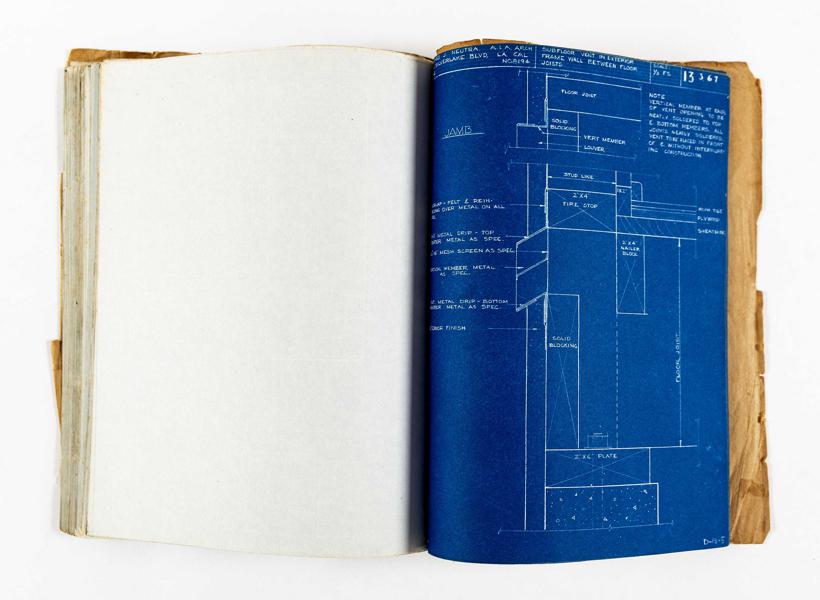 J. NEUTRA, A.I.A. ARCH
SILVERLAKE BLVD, LA CAL
SUBFLOOR VENT IN EXTERIOR
FRAME WALL BETWEEN FLOOR
JOISTS
½ FS
13
NOTE
VERTICAL MEMBER AT EACH
OF VENT OPENING TO BE
NEATLY SOLDERED TO TOP
& BOTTOM MEMBERS. ALL
JOINTS NEATLY SOLDERED.
VENT TO BE PLACED IN FRONT
OF & WITHOUT INTERRUPT-
ING CONSTRUCTION.
FLOOR JOIST
JAMB
SOLID
BLOCKING
VERT MEMBER
LOUVER
STUD LINE
2"X4"
FIRE STOP
FELT & REIN-
OVER METAL ON ALL
PLYWD
SHEATHING
METAL DRIP - TOP
METAL AS SPEC.
MESH SCREEN AS SPEC
MEMBER METAL
AS SPEC.
METAL DRIP - BOTTOM
METAL AS SPEC.
FINISH
2"X4"
NAILER
BLOCK
SOLID
BLOCKING
FLOOR JOIST
2"X6" PLATE
D-13-5